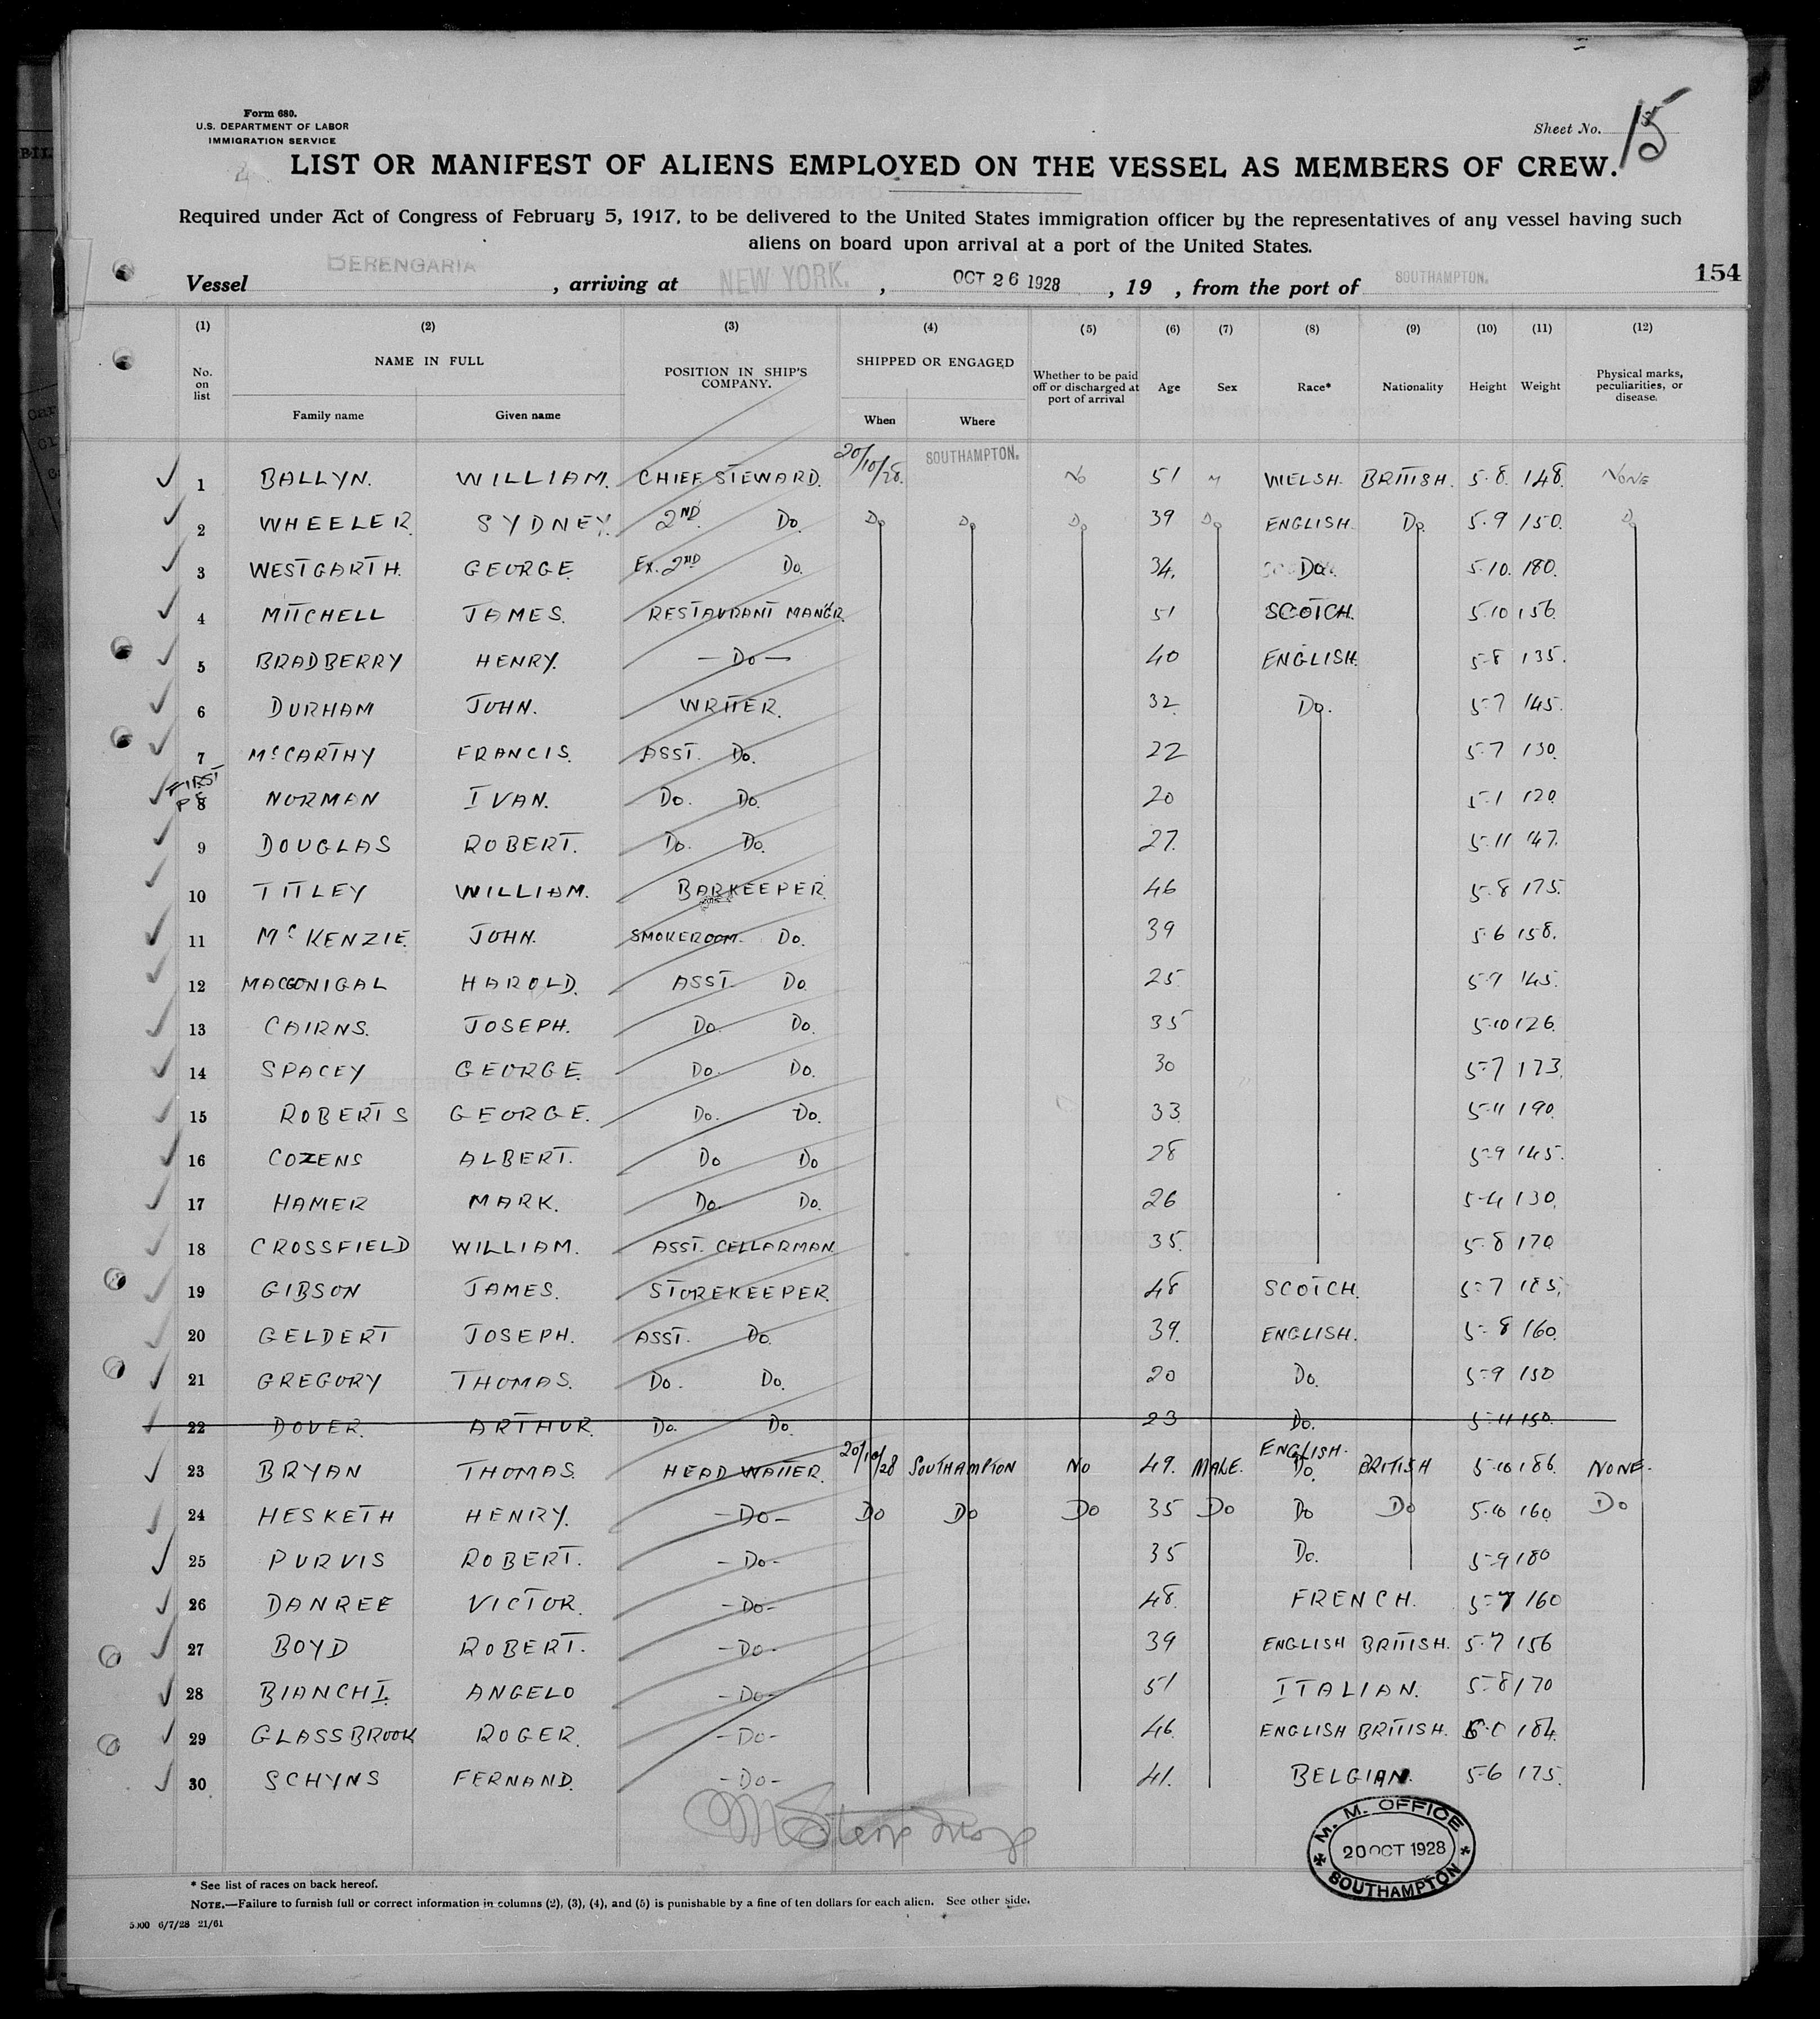 Form 680.
U.S. DEPARTMENT OF LABOR
IMMIGRATION SERVICE
Sheet No. 15
LIST OR MANIFEST OF ALIENS EMPLOYED ON THE VESSEL AS MEMBERS OF CREW.
Required under Act of Congress of February 5, 1917, to be delivered to the United States immigration officer by the representatives of any vessel having such
aliens on board upon arrival at a port of the United States.
154
Vessel BERENGARIA, arriving at NEW YORK., OCT 26 1928, 19 , from the port of SOUTHAMPTON.
(1) (2) (3) (4) (5) (6) (7) (8) (9) (10) (11) (12)
No. on list NAME IN FULL Family name Given name POSITION IN SHIP'S COMPANY. SHIPPED OR ENGAGED When Where Whether to be paid off or discharged at port of arrival Age Sex Race* Nationality Height Weight Physical marks, peculiarities, or disease.
1 BALLYN. WILLIAM. CHIEF STEWARD. 20/10/28. SOUTHAMPTON. No 51 M WELSH. BRITISH. 5.8. 148. NONE
2 WHEELER. SYDNEY. 2ND Do. Do Do Do 39 Do ENGLISH. Do. 5.9 150. Do
3 WESTGARTH. GEORGE. Ex. 2ND Do. 34. Do. 5.10. 180.
4 MITCHELL JAMES. RESTAURANT MANGR. 51 SCOTCH. 5.10 156.
5 BRADBERRY HENRY. -Do- 40 ENGLISH. 5-8 135.
6 DURHAM JOHN. WRITER. 32. Do. 5-7 145.
7 McCARTHY FRANCIS. ASST. Do. 22 5.7 130.
FIRST
8 NORMAN IVAN. Do. Do. 20 5-1 120.
9 DOUGLAS ROBERT. Do. Do. 27. 5.11 147.
10 TITLEY WILLIAM. BARKEEPER. 46 5.8 175.
11 McKENZIE. JOHN. SMOKEROOM. Do. 39 5.6 158.
12 MACGONIGAL HAROLD. ASST. Do. 25. 5.9 145.
13 CAIRNS. JOSEPH. Do. Do. 35 5.10 126.
14 SPACEY GEORGE. Do. Do. 30 5-7 173.
15 ROBERTS GEORGE. Do. Do. 33. 5-11 190.
16 COZENS ALBERT. Do Do 28 5-9 145.
17 HAMER MARK. Do. Do. 26 5-4 130.
18 CROSSFIELD WILLIAM. ASST. CELLARMAN 35. 5.8 170.
19 GIBSON JAMES. STOREKEEPER. 48 SCOTCH. 5-7
20 GELDERT JOSEPH. ASST. Do. 39. ENGLISH. 5-8 160.
21 GREGORY THOMAS. Do. Do. 20 Do. 5-9 150
22 DOVER. ARTHUR. Do. Do. 23 Do. 5-11 150.
23 BRYAN THOMAS. HEAD WAITER. 20/10/28 SOUTHAMPTON No 49. MALE. ENGLISH. Do. BRITISH 5.10 186. NONE.
24 HESKETH HENRY. -Do- Do Do Do 35 Do Do Do 5.10 160. Do
25 PURVIS ROBERT. -Do- 35 Do. 5-9 180
26 DANREE VICTOR. -Do- 48. FRENCH. 5-7 160
27 BOYD ROBERT. -Do- 39 ENGLISH BRITISH. 5.7 156
28 BIANCHI. ANGELO -Do- 51 ITALIAN. 5-8 170
29 GLASSBROOK ROGER. -Do- 46. ENGLISH BRITISH. 6.0 184.
30 SCHYNS FERNAND. -Do- 41. BELGIAN. 5-6 175.
M. M. OFFICE
20 OCT 1928
SOUTHAMPTON
* See list of races on back hereof.
NOTE.—Failure to furnish full or correct information in columns (2), (3), (4), and (5) is punishable by a fine of ten dollars for each alien. See other side.
5000 6/7/28 21/61